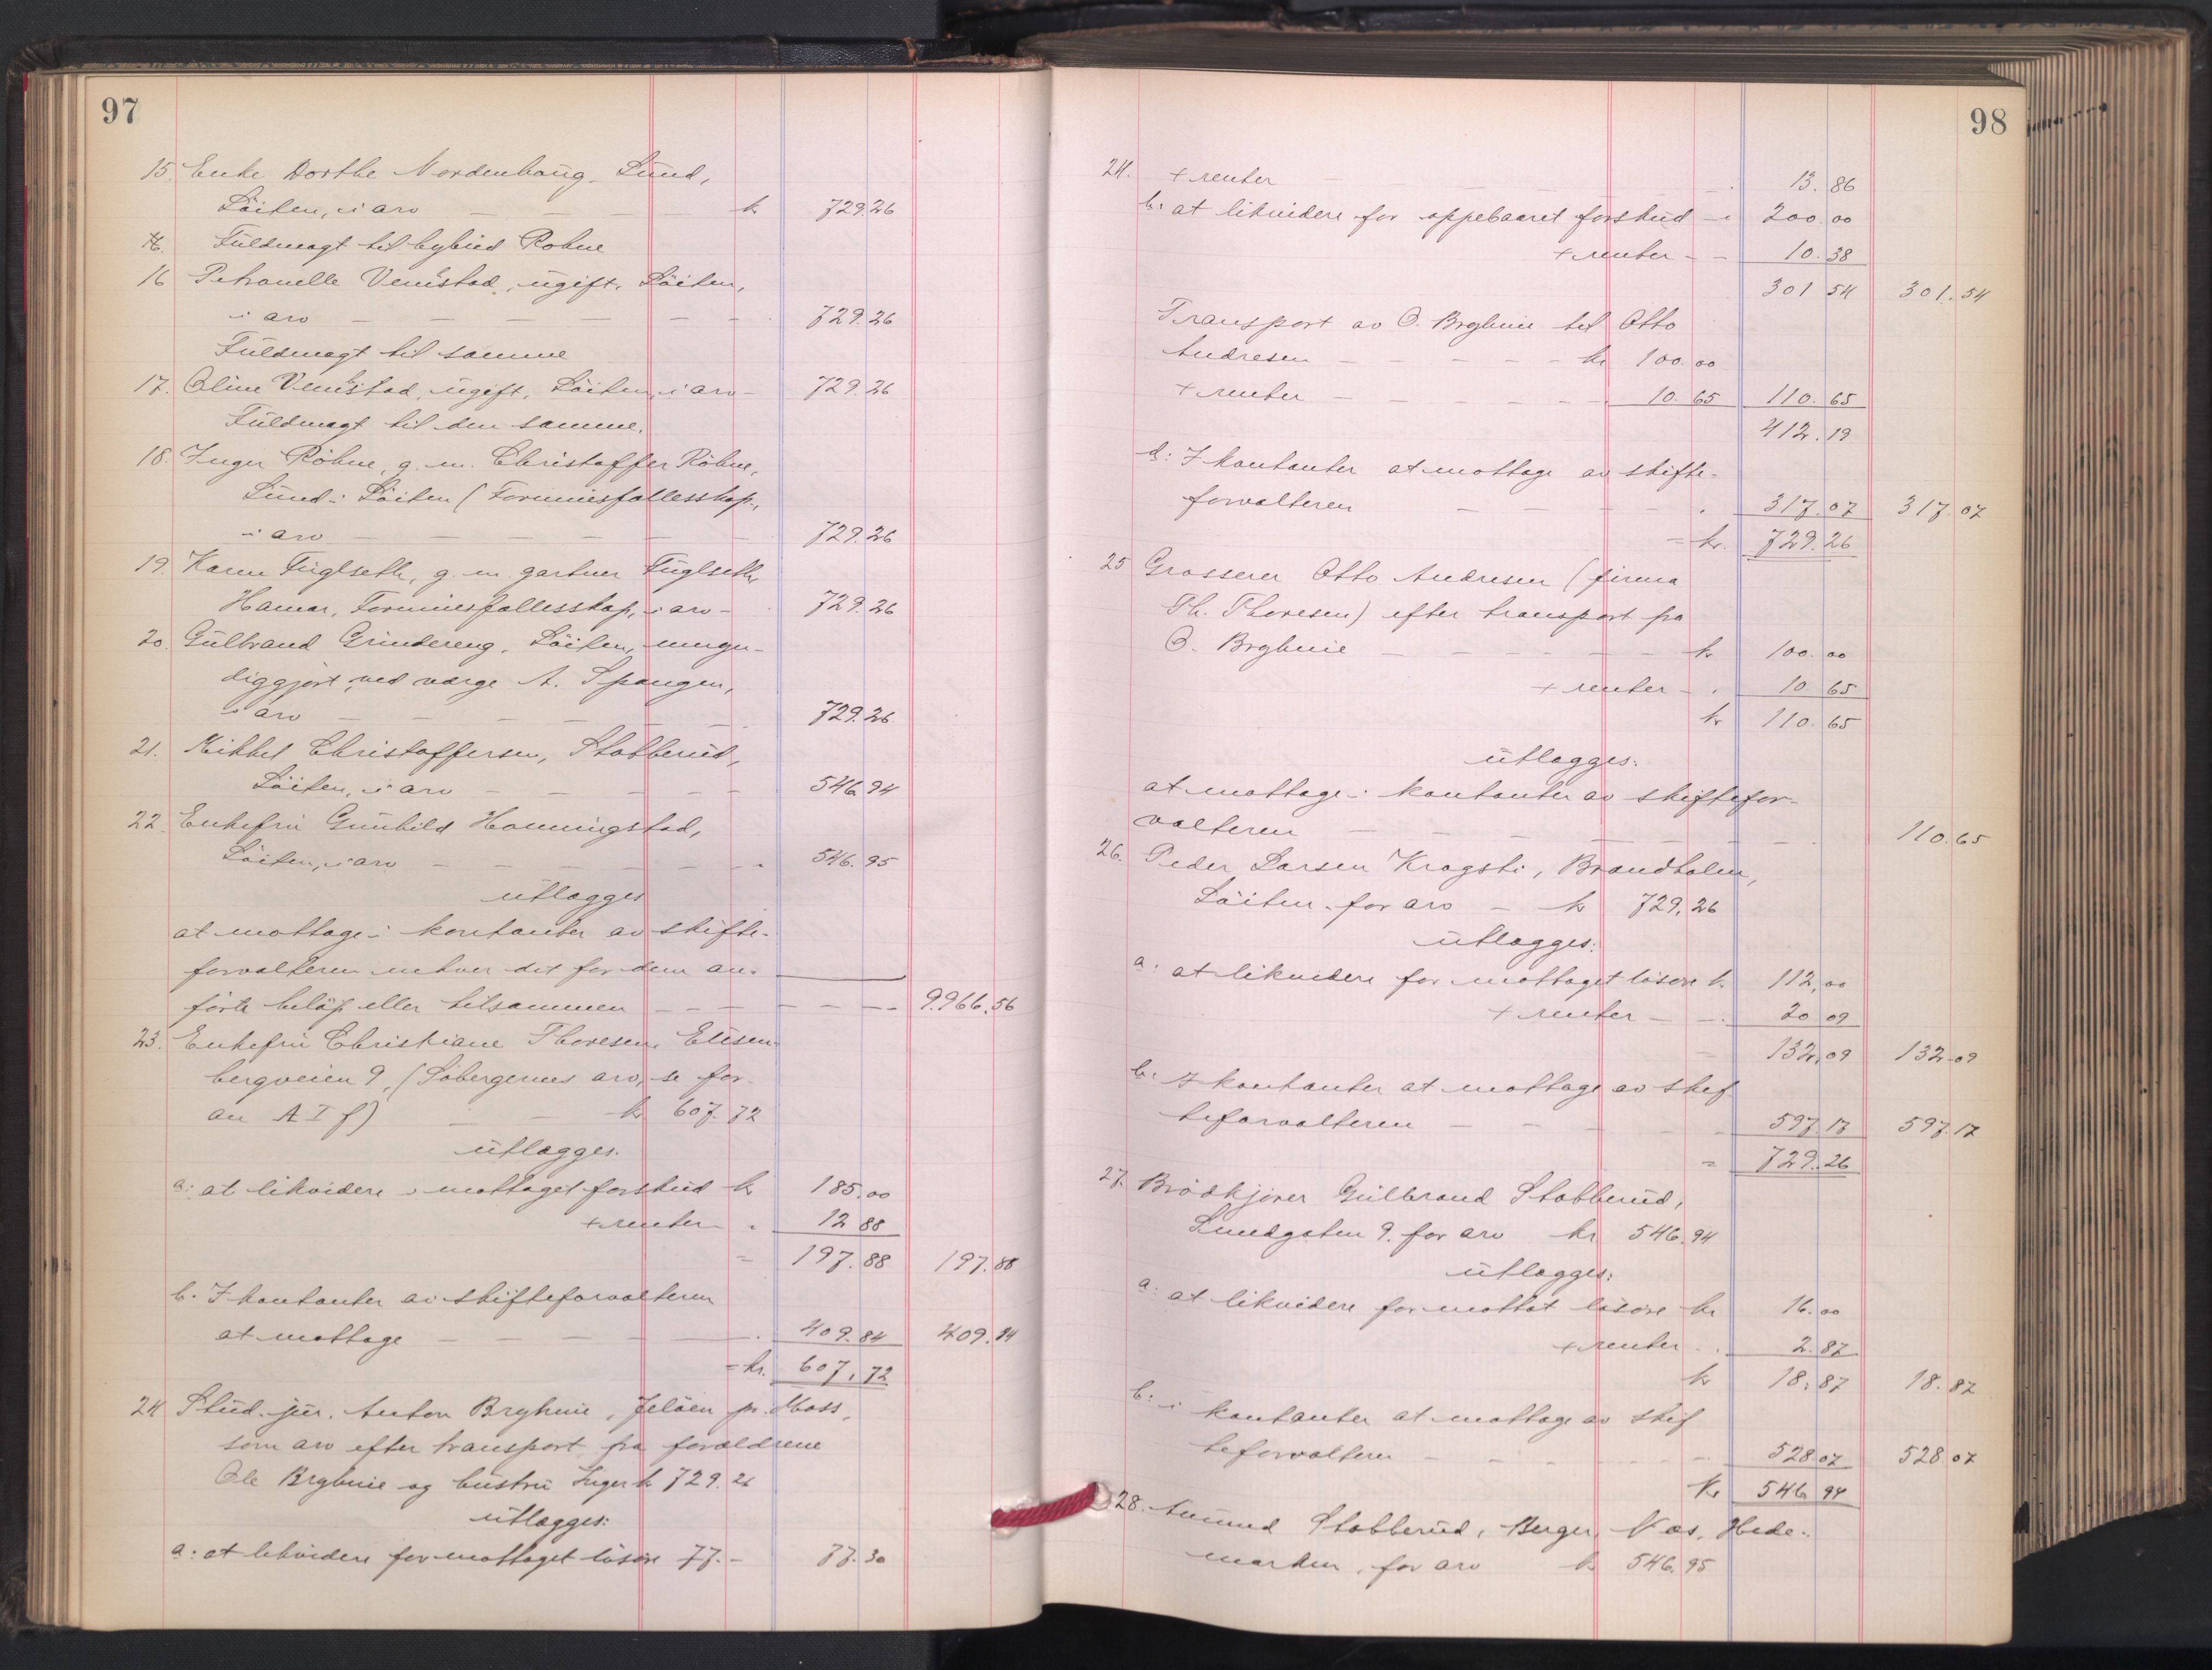 97
15. Enke Dorthe Nordenhaug, Lund,
Löiten, i arv — — — — kr 729.26
16. Fuldmagt til bybud Röhne
16 Petronelle Venistad, ugift, Löiten,
i arv — — — — — — 729.26
Fuldmagt til samme
17. Oline Venistad, ugift, Löiten, i arv — 729.26
Fuldmagt til den samme.
18. Inger Röhne, g. m. Christoffer Röhne,
Lund i Löiten (Formuesfællesskap,
i arv — — — — — — 729.26
19. Karen Fuglseth, g. m. gartner Fuglseth,
Hamar, Formuesfællesskap, i arv — 729.26
20. Gulbrand Grindereng, Löiten, umyn-
diggjort, ved værge A. Spangen,
i arv — — — — — — 729.26
21. Mikkel Christoffersen, Stobberud,
Löiten, i arv — — — — — 546.94
22. Enkefru Gunhild Hommingstad,
Löiten, i arv — — — — — 546.95
utlægges
at mottage i kontanter av skifte-
forvalteren enhver det for dem an-
förte belöp eller tilsammen — — — — 9.966.56
23. Enkefru Christiane Thoresen, Elisen-
bergveien 9, (Söbergernes arv, se for-
an A I f) — — kr 607.72
utlægges.
a: at likvidere i mottaget forskud kr 185.00
+ renter — 12 88
= 197.88 197.88
b. I kontanter av skifteforvalteren
at mottage — — — — 409.84 409.84
= kr. 607,72
24 Stud. jur. Anton Bryhnie, Jelöen pr. Moss,
som arv efter transport fra forældrene
Ole Bryhnie og hustru Inger kr 729.26
utlægges:
a: at likvidere for mottaget lösöre 77.— 77.30
98
24. + renter — — — — 13.86
b: at likvidere for oppebaaret forskud — 200.00
+ renter — — 10.38
301 54 301.54
Transport av O. Bryhnie til Otto
Andresen — — — — — kr 100.00
+ renter — — — — — — 10.65 110.65
412.19
d: I kontanter at mottage av skifte-
forvalteren — — — — 317.07 317.07
= kr. 729.26
25 Grosserer Otto Andresen (firma
Th. Thoresen) efter transport fra
O. Bryhnie — — — — — — kr 100.00
+ renter — 10.65
kr 110.65
utlægges:
at mottage i kontanter av skiftefor-
valteren — — — — — — 110.65
26. Peder Larsen Kragsti, Brandholm,
Löiten, for arv — kr 729,26
utlægges:
a: at likvidere for mottaget lösöre kr. 112,00
+ renter — — 20 09
132,09 132.09
b: I kontanter at mottage av skif
teforvalteren — — — — — 597.17 597.17
= 729.26
27. Brödkjörer Gulbrand Stobberud,
Lundgaten 9. for arv kr 546.94
utlægges:
a: at likvidere for mottat lösöre kr 16.00
+ renter . . 2.87
kr 18.87 18.87
b: i kontanter at mottage av skif
teforvalteren — — — — — 528.07 528.07
Kr 546.94
28. Amund Stobberud, Berger, Nes, Hede-
marken, for arv kr 546.95